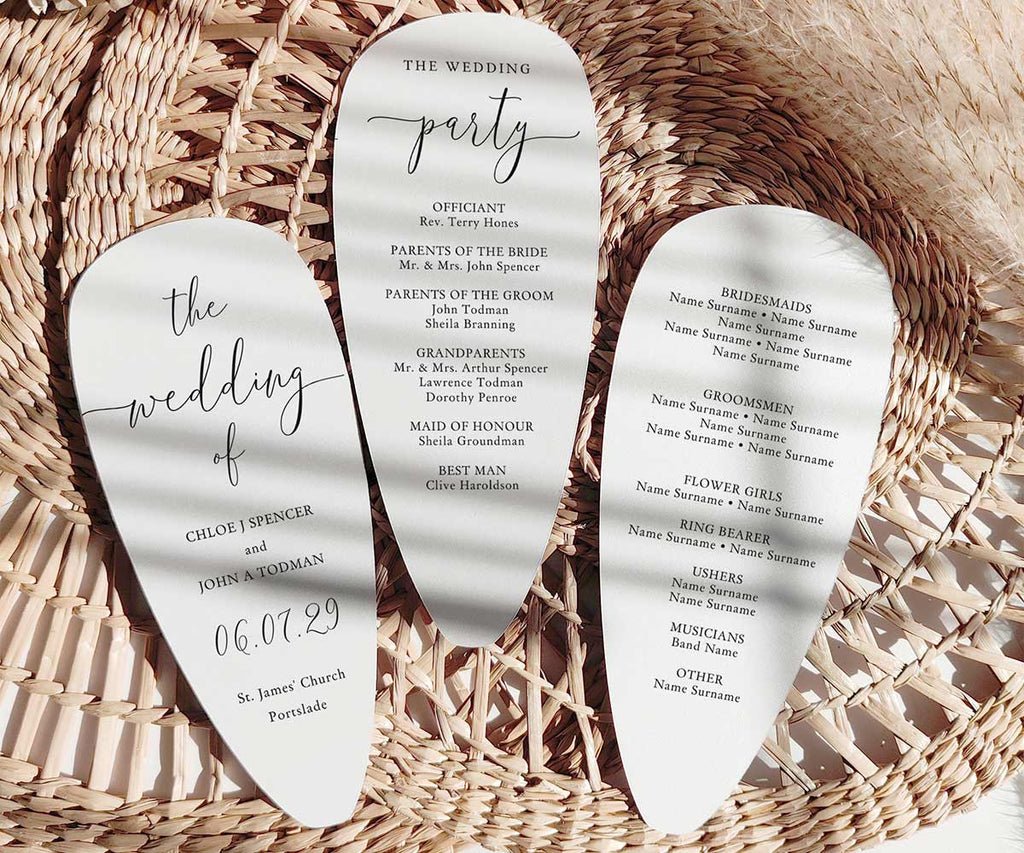 the
wedding
of
CHLOE J SPENCER
and
JOHN A TODMAN
06.07.29
St. James' Church
Portslade
THE WEDDING
party
OFFICIANT
Rev. Terry Hones
PARENTS OF THE BRIDE
Mr. & Mrs. John Spencer
PARENTS OF THE GROOM
John Todman
Sheila Branning
GRANDPARENTS
Mr. & Mrs. Arthur Spencer
Lawrence Todman
Dorothy Penroe
MAID OF HONOUR
Sheila Groundman
BEST MAN
Clive Haroldson
BRIDESMAIDS
Name Surname • Name Surname
Name Surname
Name Surname • Name Surname
Name Surname
GROOMSMEN
Name Surname • Name Surname
Name Surname
Name Surname • Name Surname
FLOWER GIRLS
Name Surname • Name Surname
RING BEARER
Name Surname • Name Surname
USHERS
Name Surname
Name Surname
MUSICIANS
Band Name
OTHER
Name Surname